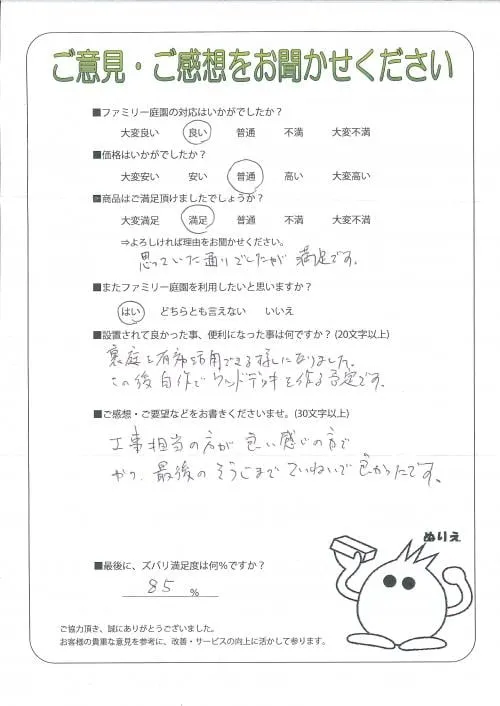 ご意見・ご感想をお聞かせください
■ファミリー庭園の対応はいかがでしたか？
大変良い 良い 普通 不満 大変不満
■価格はいかがでしたか？
大変安い 安い 普通 高い 大変高い
■商品はご満足頂けましたでしょうか？
大変満足 満足 普通 不満 大変不満
⇒よろしければ理由をお聞かせください。
思っていた通りでしたが 満足です。
■またファミリー庭園を利用したいと思いますか？
はい どちらとも言えない いいえ
■設置されて良かった事、便利になった事は何ですか？(20文字以上)
裏庭も有効活用できる様になりました。
この後自作でウッドデッキを作る予定です。
■ご感想・ご要望などをお書きくださいませ。(30文字以上)
工事担当の方が 良い感じの方で
かつ、最後のそうじまで ていねいで 良かったです。
ぬりえ
■最後に、ズバリ満足度は何％ですか？
85 ％
ご協力頂き、誠にありがとうございました。
お客様の貴重な意見を参考に、改善・サービスの向上に活かして参ります。